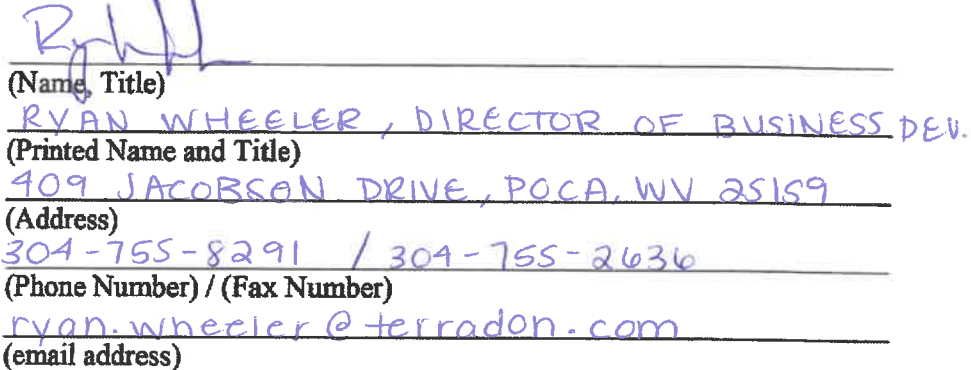 (Name, Title)
RYAN WHEELER, DIRECTOR OF BUSINESS DEV.
(Printed Name and Title)
409 JACOBSON DRIVE, POCA, WV 25159
(Address)
304-755-8291 / 304-755-2636
(Phone Number) / (Fax Number)
ryan.wheeler@terradon.com
(email address)